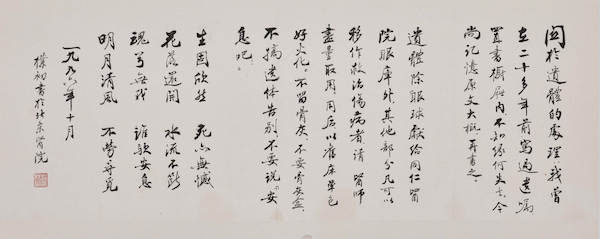 关于遗体的处理,我曾
在二十多年前写过遗嘱
置书橱屉内,不知缘何失去,今
尚记忆原文大概,再书之。
遗体除眼球献给同仁医
院眼库外,其他部分凡可以
移作救治伤病者,请医师
尽量取用。用后以旧床单包
好火化。不留骨灰,不要骨灰盒,
不搞遗体告别,不要说"安
息吧"。
生固欣然 死亦无憾
花落还开 水流不断
魂兮无我 谁欤安息
明月清风 不劳寻觅
一九九六年十月
朴初书于北京医院